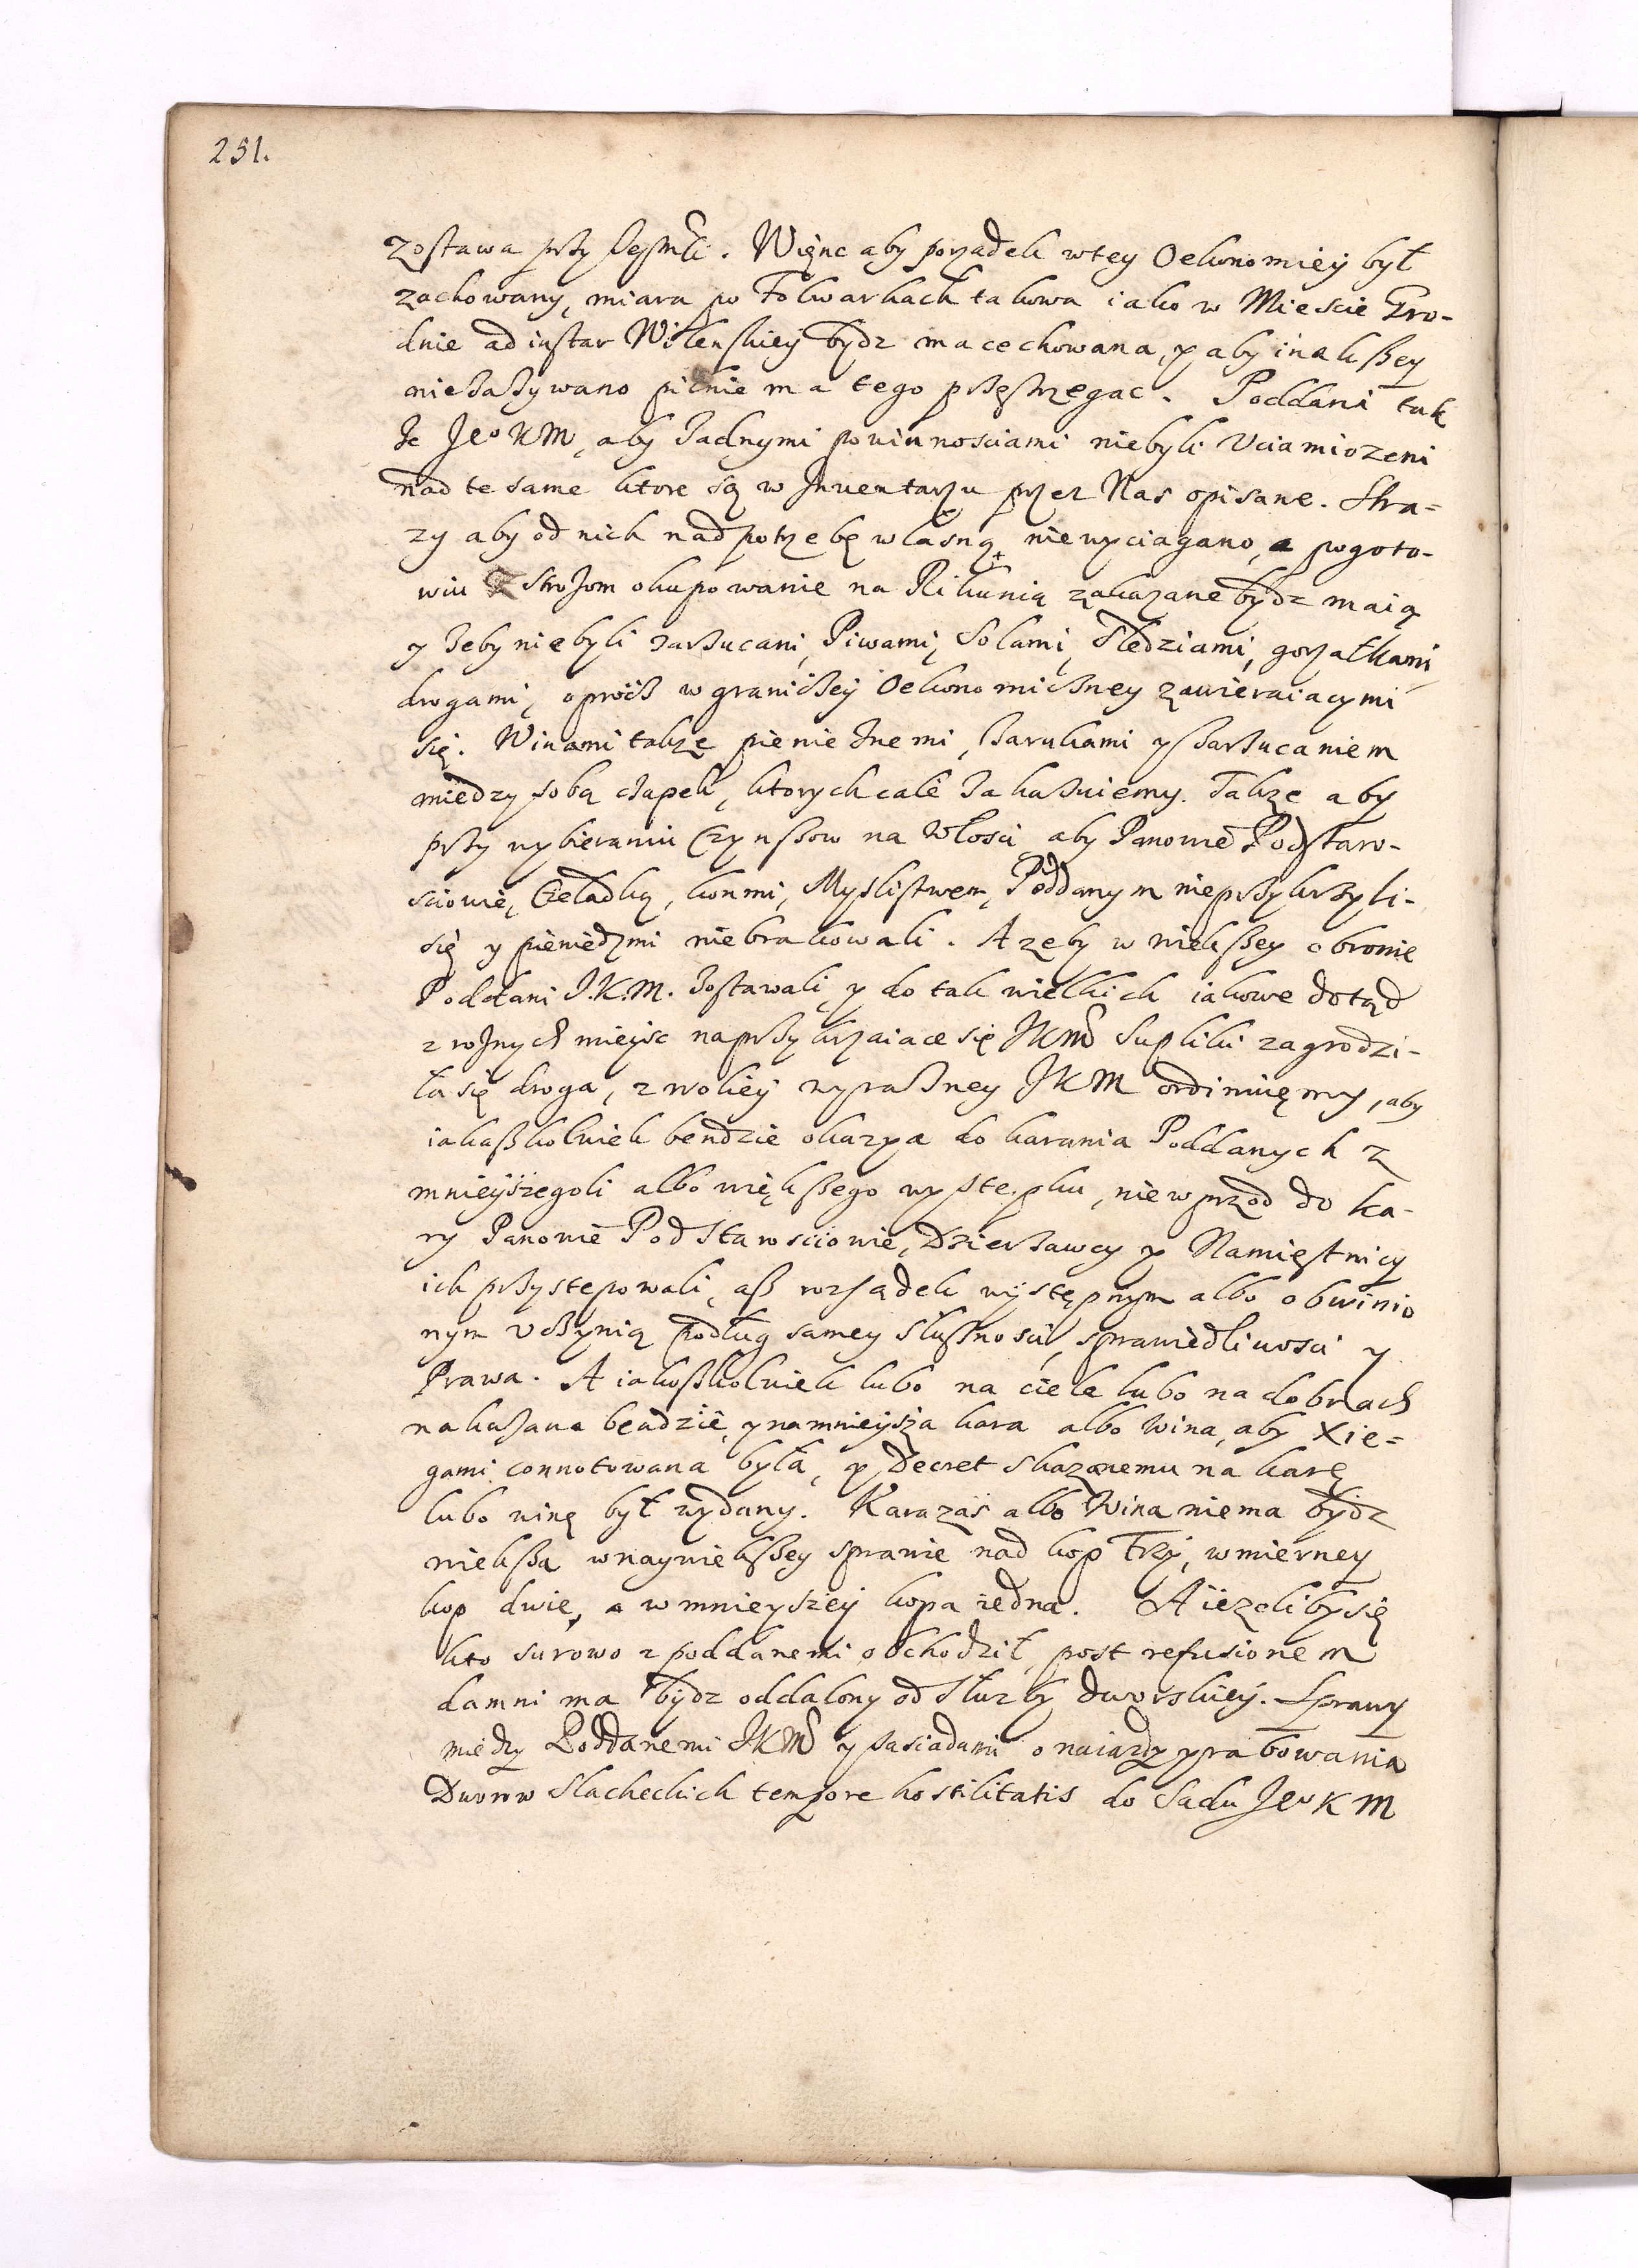 251.
zostawa przy Jejmści. Więnc aby porządek w tey Oekonomiey był
zachowany, miara po Folwarkach takowa iako w Mieście Gro-
dnie ad instar Wilenskiey bydz ma cechowana, y aby inakszey
niezażywano pilnie ma tego przestrzegac. Poddani tak
że JeoKM, aby żadnymi powinnościami niebyli Uciamiozeni
nad te same ktore są w Inuentarzu przez Nas opisane. Stra=
zy aby od nich nad potrzebę własną niewyciagano, a pogoto-
wiu Strożom okupowanie na Rikunią zakazane bydz maią
y żeby niebyli zarzucani, Piwami, Solami, Śledziami, gorzałkami
drogami, oprócz w graniczey Oekonomiczney zawieraiacymi
się. Winami takze pienieżnemi, barukami y zarzucaniem
miedzy sobą czapek, ktorych cale zakazuiemy. Takze aby
przy wybieraniu Czynszow na Włości aby Panowie Podstaro-
sciowie, Czeladką, konmi, Myslistwem, Poddanym nieprzykrzyli-
się y pieniedzmi niebrakowali. A zeby w wiekszey obronie
Poddani J.K.M. zostawali, y do tak wielkich iakowe dotąd
z rożnych mieysc naprzykrzaiace się JKMci Supliki zagrodzi-
ła się droga, z woliey wyrazney JKM ordinuięmy, aby
iakaszkolwiek bendzie okazya do karania Poddanych z
mnieyszegoli albo większego wystepku, niewprzod do ka-
ry Panowie Podstarosciowie, Dzierżawcy y Namięstnicy
ich przystepowali, asz rozsądek występnym albo obwinio
nym uczynią podług samey Słusznosci, sprawiedliwosci y
Prawa. A iakoszkolwiek lubo na ciele lubo na dobrach
nakazana bendzie, y namnieysza kara albo Wina, aby Xię=
gami connotowana była, y Decret skazanemu na karę
lubo winę był wydany. Kara zaś albo Wina niema bydz
wieksza w naywiekszey sprawie nad kop Trzy, w mierney
kop dwie, a w mnieyszey kopa iedna. A iezeliby się
kto surowo z poddanemi obchodził, post refusionem
damni ma bydz oddalony od Służby dworskiey. Sprawy
miedzy Poddanemi JKMci y sasiadami o naiazdy y rabowania
Dworow Slacheckich tempore hostilitatis do Sadu JeoKM